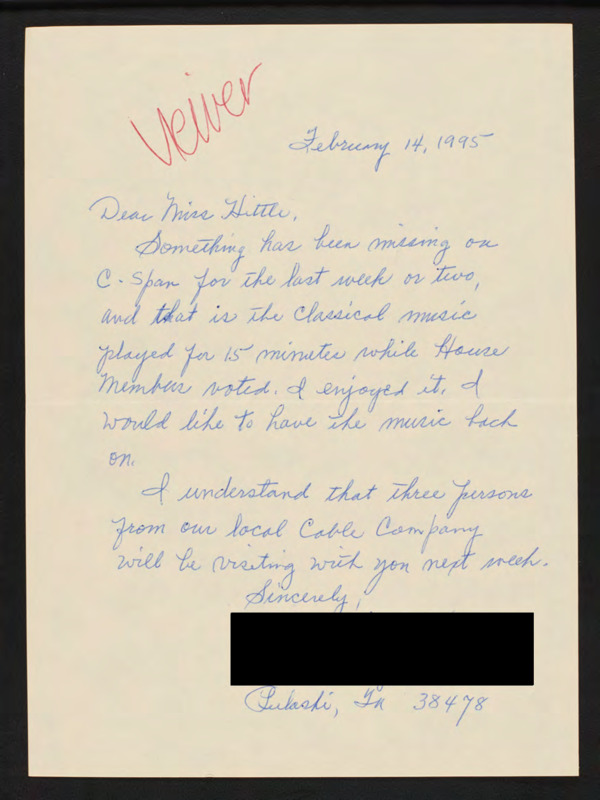 Veiver
February 14, 1995
Dear Miss Hittle,
Something has been missing on
C-Span for the last week or two,
and that is the classical music
played for 15 minutes while House
Members voted. I enjoyed it. I
would like to have the music back
on.
I understand that three persons
from our local Cable Company
will be visiting with you next week.
Sincerely,
Pulaski, Tn 38478